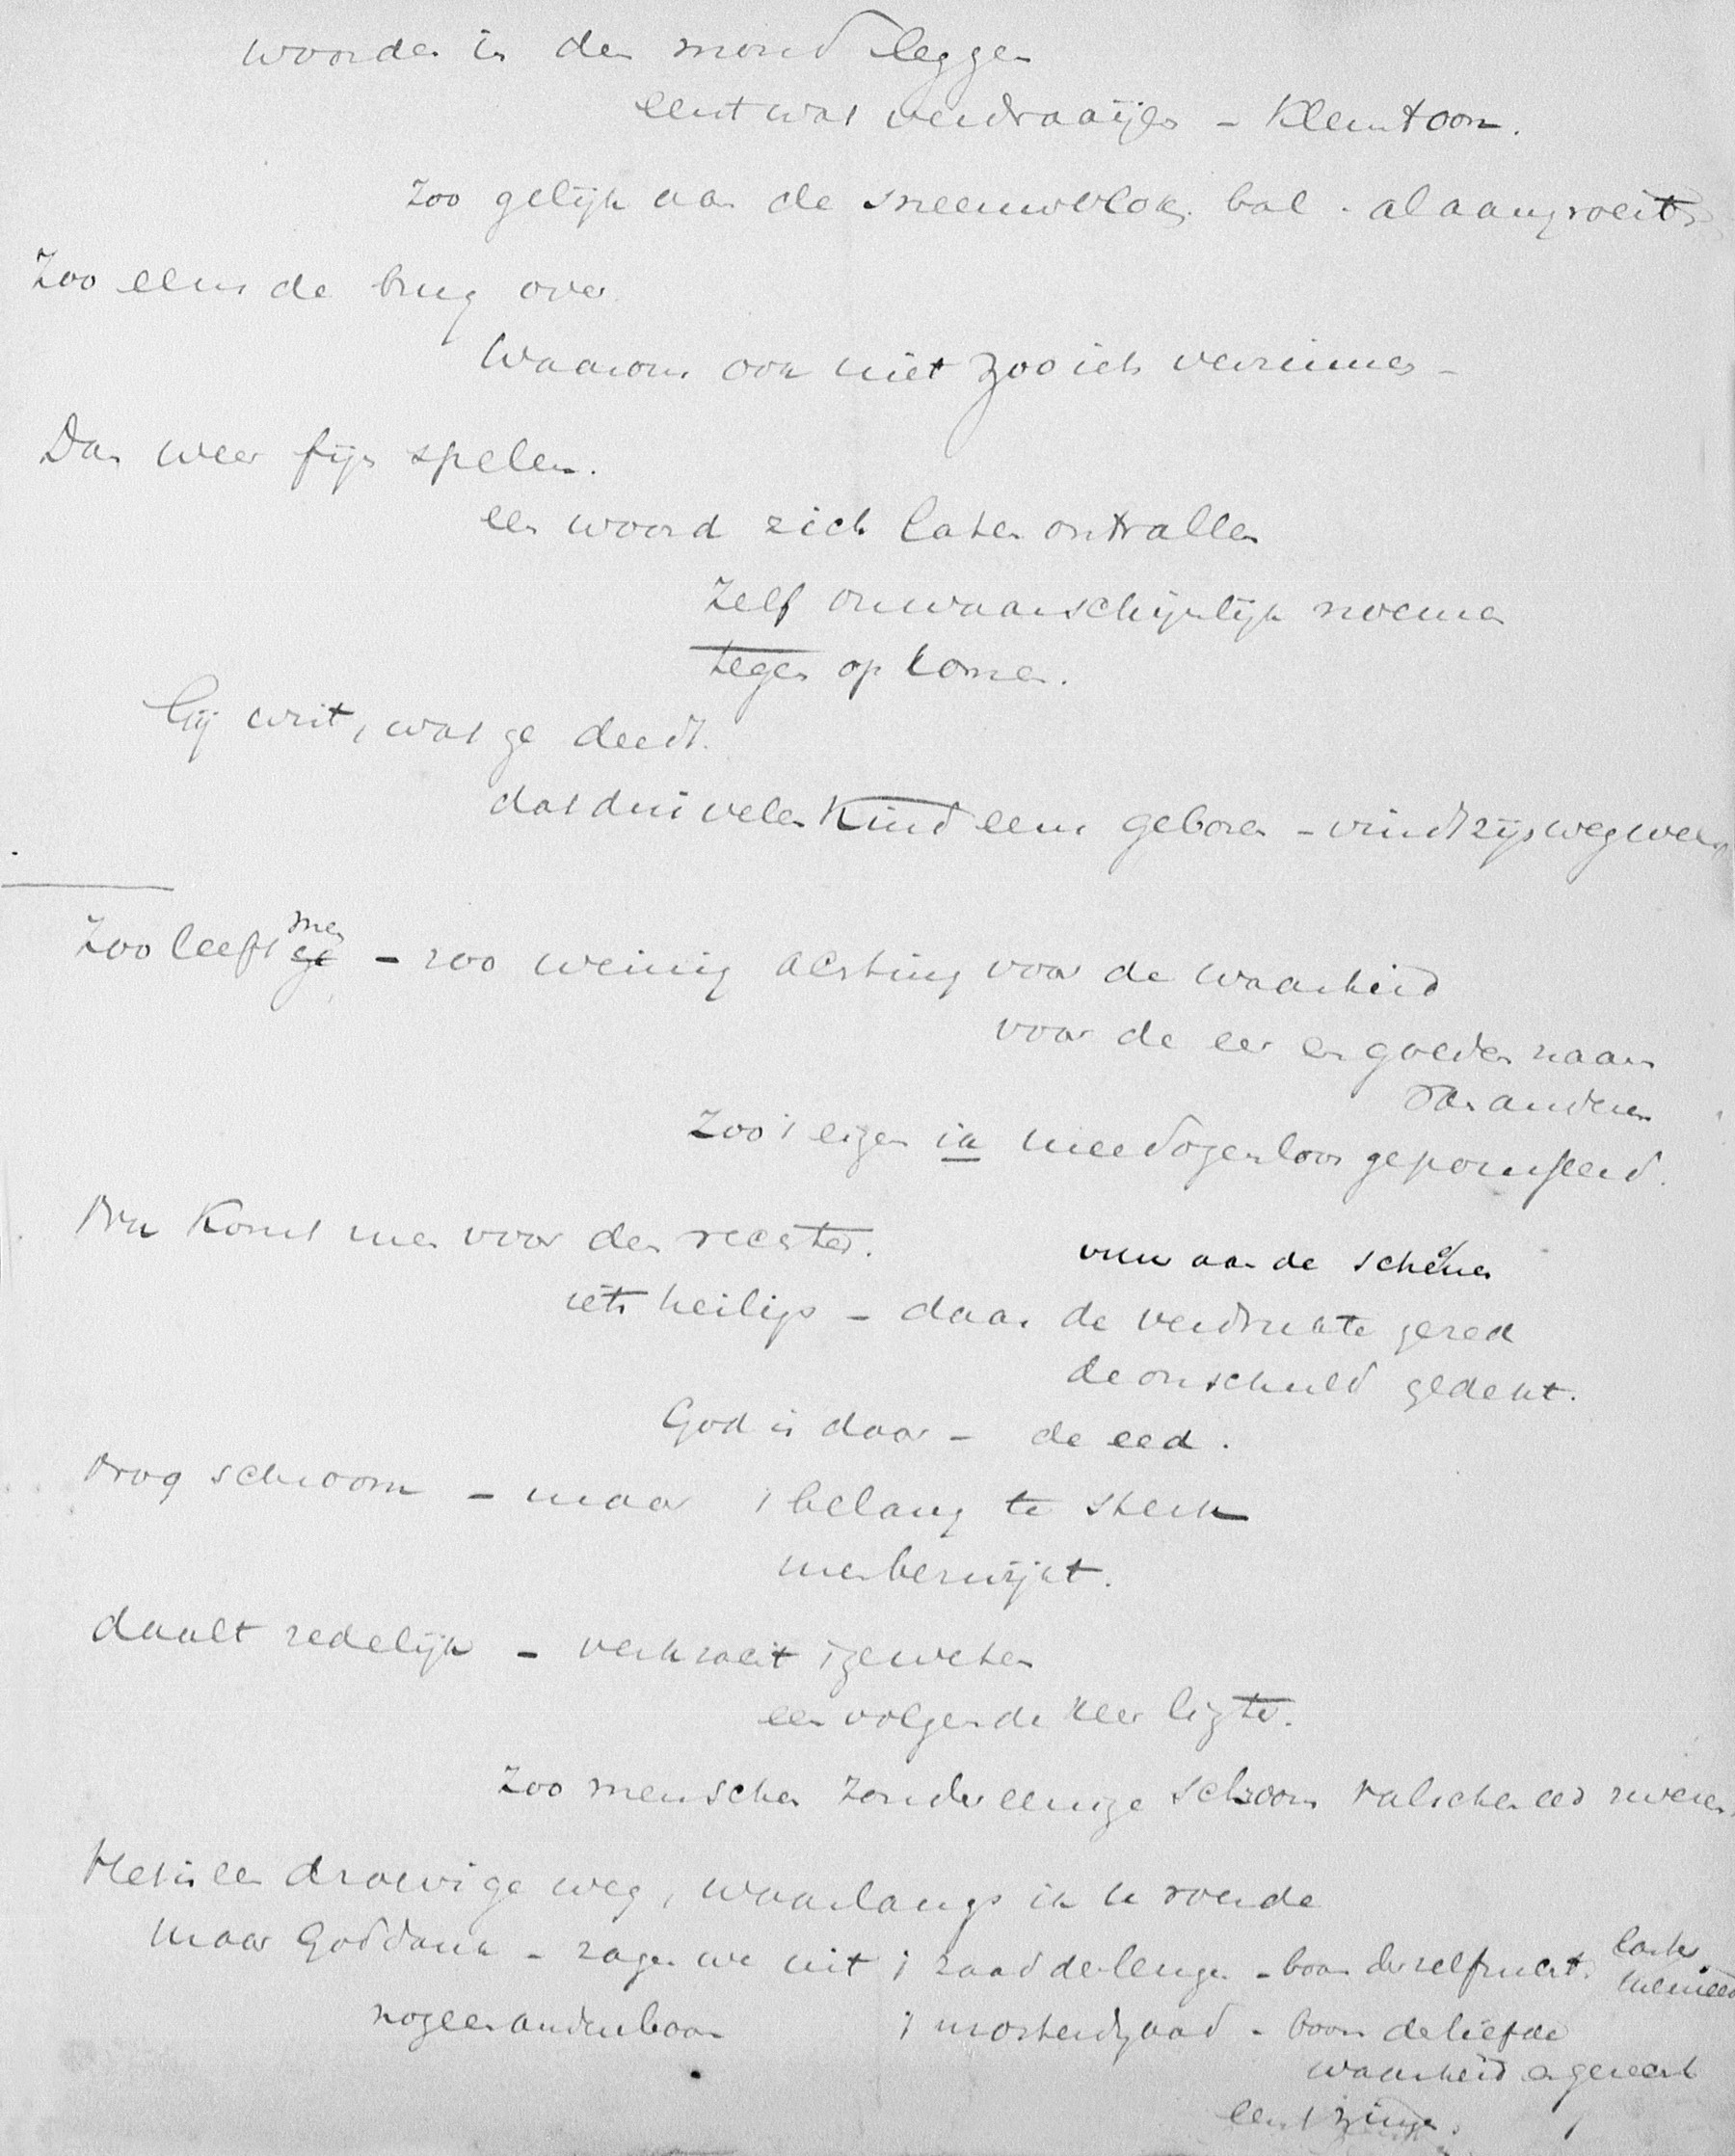 woorden in den mond leggen
eerst wat verdraaijen - klemtoon.
zoo gelijk aan de sneeuwvlok, bal - al aangroeit
Zoo eens de brug over
Waarom ook niet zoo iets verzinnen -
Dan weer fijn spelen.
een woord zich laten ontvallen
zelf onwaarschijnlijk noemen
tegen op komen.
Gij wist, wat ge deedt.
dat duivelenkind eens geboren - vindt zijn weg wel
Zoo leeft men ge - zoo weinig achting voor de waarheid
voor de eer en goeden naam
van anderen
Zoo 't eigen ik meedogenloos
Nu komt men voor den rechter.
vuur aan de schenen
iets heiligs - daar de verdrukte gered
de onschuld gedekt.
God is daar - de eed.
Nog schroom - maar 't belang te sterk
men bezwijkt.
daalt zedelijk - verkracht 't geweten
een volgende keer ligter.
Zoo menschen zonder eenige schroom valschen eed zweren
Het is een droevige weg, waarlangs ik u voerde
maar Goddank - zagen we uit 't zaad der leugen - boom der zelfzucht. laster, meineed
nog een anderen boom 't mosterdzaad - boom der liefde
waarheid en gerecht